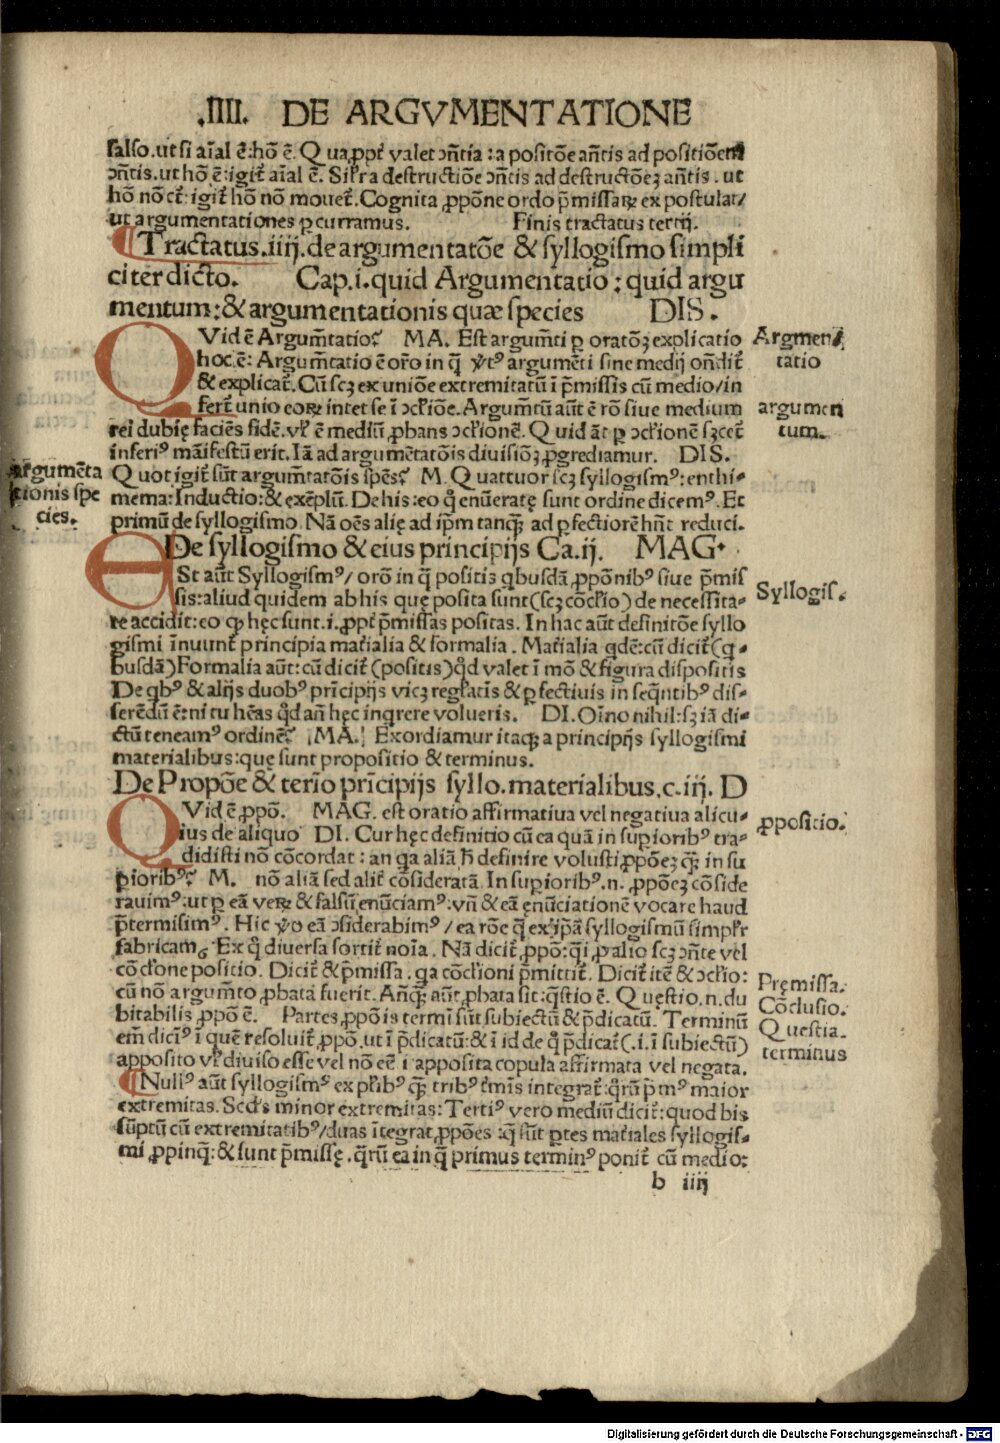 .IIII. DE ARGVMENTATIONE
falso.ut si aīal ē:hō ē. Qua ꝓpt̃ valet ↄñtia : a positōe añtis ad positiōem
ↄñtis.ut hō ē:igit̃ aīal ē. Sil̃r a destructiōe ↄñtis ad destructōeꝫ añtis . ut
hō nō ct̃: igit̃ hō nō mouet̃. Cognita ꝓpōne ordo p̄missaꝝ expostulat/
ut argumentationes ꝑcurramus. Finis tractatus tertij.
¶Tractatus.iiij.de argumentatōe & syllogismo simpli
citer dicto. Cap.i.quid Argumentatio : quid argu
mentum:& argumentationis quæ species DIS.
QVid ē Argum̄tatio? MA. Est argum̄ti ꝑ oratōꝫ explicatio
hoc.ē: Argum̄tatio ē oro in q̄ argumēti sine medij oñdit̃
& explicat̃. Cū scꝫ ex uniōe extremitatū ī p̄missis cū medio/in
fert̃ unio eoꝝ inter se ī ↄcl̃iōe. Argum̄tū aūt ē rō siue medium
rei dubię faciēs fidē. vl̃ ē mediū ꝓbans ↄcl̃ionē. Quid āt ꝑ ↄcl̃ionē sꝫcet̃
inferiꝰ māifestū erit. Iā ad argumētatōis diuisiōꝫ ꝓgrediamur. DIS.
Quot igit̃ sūt argum̄tatōis spēs? M. Quattuor scꝫ syllogismꝰ: enthi⸗
mema: Inductio: & exēplū. De his: eo q̄ enūeratę sunt ordine dicemꝰ. Et
primū de syllogismo. Nā oēs alię ad ip̄m tanq̄ꝫ ad ꝑfectiorē hñt reduci.
De syllogismo & eius principijs Ca.ij. MAG.
ESt aūt Syllogismꝰ/ orō in q̄ positis q̇busdā ꝓpōnibꝰ siue p̄mis
sis:aliud quidem ab his quę posita sunt (scꝫ cōcl̃io) de necessita⸗
te accidit: eo ꝙ hęc sunt.i.ꝓpt̃ p̄missas positas. In hac aūt definitōe syllo
gismi īnuunt̃ principia mat̃ialia & formalia . Mat̃ialia q̇dē:cū dicit̃ (q̇⸗
busdā) Formalia aūt: cū dicit̃ (positis) q̇d valet ī mō & figura dispositis
De q̇bꝰ & alijs duobꝰ prīcipijs vicꝫ regl̃atis & ꝑfectiuis in seq̄ntibꝰ dis⸗
serēdū ē: ni tu hēas q̇d añ hęc inq̇rere volueris. DI. Oīno nihil: sꝫ iā di⸗
ctū teneamꝰ ordinē? MA. Exordiamur itaqꝫ a principijs syllogismi
materialibus: quę sunt propositio & terminus.
De Propōe & terīo prīcipijs syllo. materialibus.c.iij. D
QVid ē ꝓpō. MAG. est oratio affirmatiua vel negatiua alicu⸗
ius de aliquo DI. Cur hęc definitio cū ea quā in supioribꝰ tra⸗
didisti nō cōcordat : an q̇a aliā definire voluisti ꝓpōeꝫ q̄ꝫ in su
ꝑioribꝰ? M. nō aliā sed alit̃ cōsideratā. In suꝑioribꝰ.n. ꝓpōeꝫ cōside
rauimꝰ: ut ꝑ eā veꝝ & falsū enūciamꝰ: vñ & eā ęnūciationē vocare haud
p̄termisimꝰ. Hic eā ↄsiderabimꝰ / ea rōe q̄ ex ip̄a syllogismū simpl̃r
fabricamꝰ Ex q̄ diuersa sortit̃ noīa. Nā dicit̃ ꝓpō: q̄si ꝓ alio scꝫ ↄñte vel
cōcl̃one positio. Dicit̃ & p̄missa. q̇a cōcl̃ioni p̄mittit̃. Dicit̃ itē & ↄcl̃io:
cū nō argum̄to ꝓbata fuerit. Añq̄ꝫ aūt ꝓbata sit: q̄stio ē. Quęstio.n.du
bitabilis ꝓpō ē. Partes ꝓpōis termī sūt subiectū & p̄dicatū. Terminū
em̄ dicīꝰ ī quē resoluit̃ ꝓpō. ut ī p̄dicatū: & ī id de q̄ p̄dicat̃ (.i. ī subiectū)
apposito vl̃ diuiso esse vel nō eē ī apposita copula affirmata vel negata.
¶Nullꝰ aūt syllogismꝰ ex pl̃ibꝰ q̄ꝫ tribꝰ t̃mīs integrat̃: q̄rū p̄mꝰ maior
extremitas. Scd's minor extremitas: Tertiꝰ vero mediū dicit̃: quod bis
sūptū cū extremitatibꝰ/duas ītegrat ꝓpōes : q̄ sūt ꝑtes mat̃iales syllogis⸗
mi ꝓpinq̄: & sunt p̄missę. q̄rū ea in q̄ primus terminꝰ ponit̃ cū medio:
b iiij
Argmen
tatio
argumen
tum.
Argumēta
tionis spe
cies.
Syllogis.
ꝓpositio.
Pręmissa.
Cōclusio.
Questia.
terminus
Digitalisierung gefördert durch die Deutsche Forschungsgemeinschaft - DFG